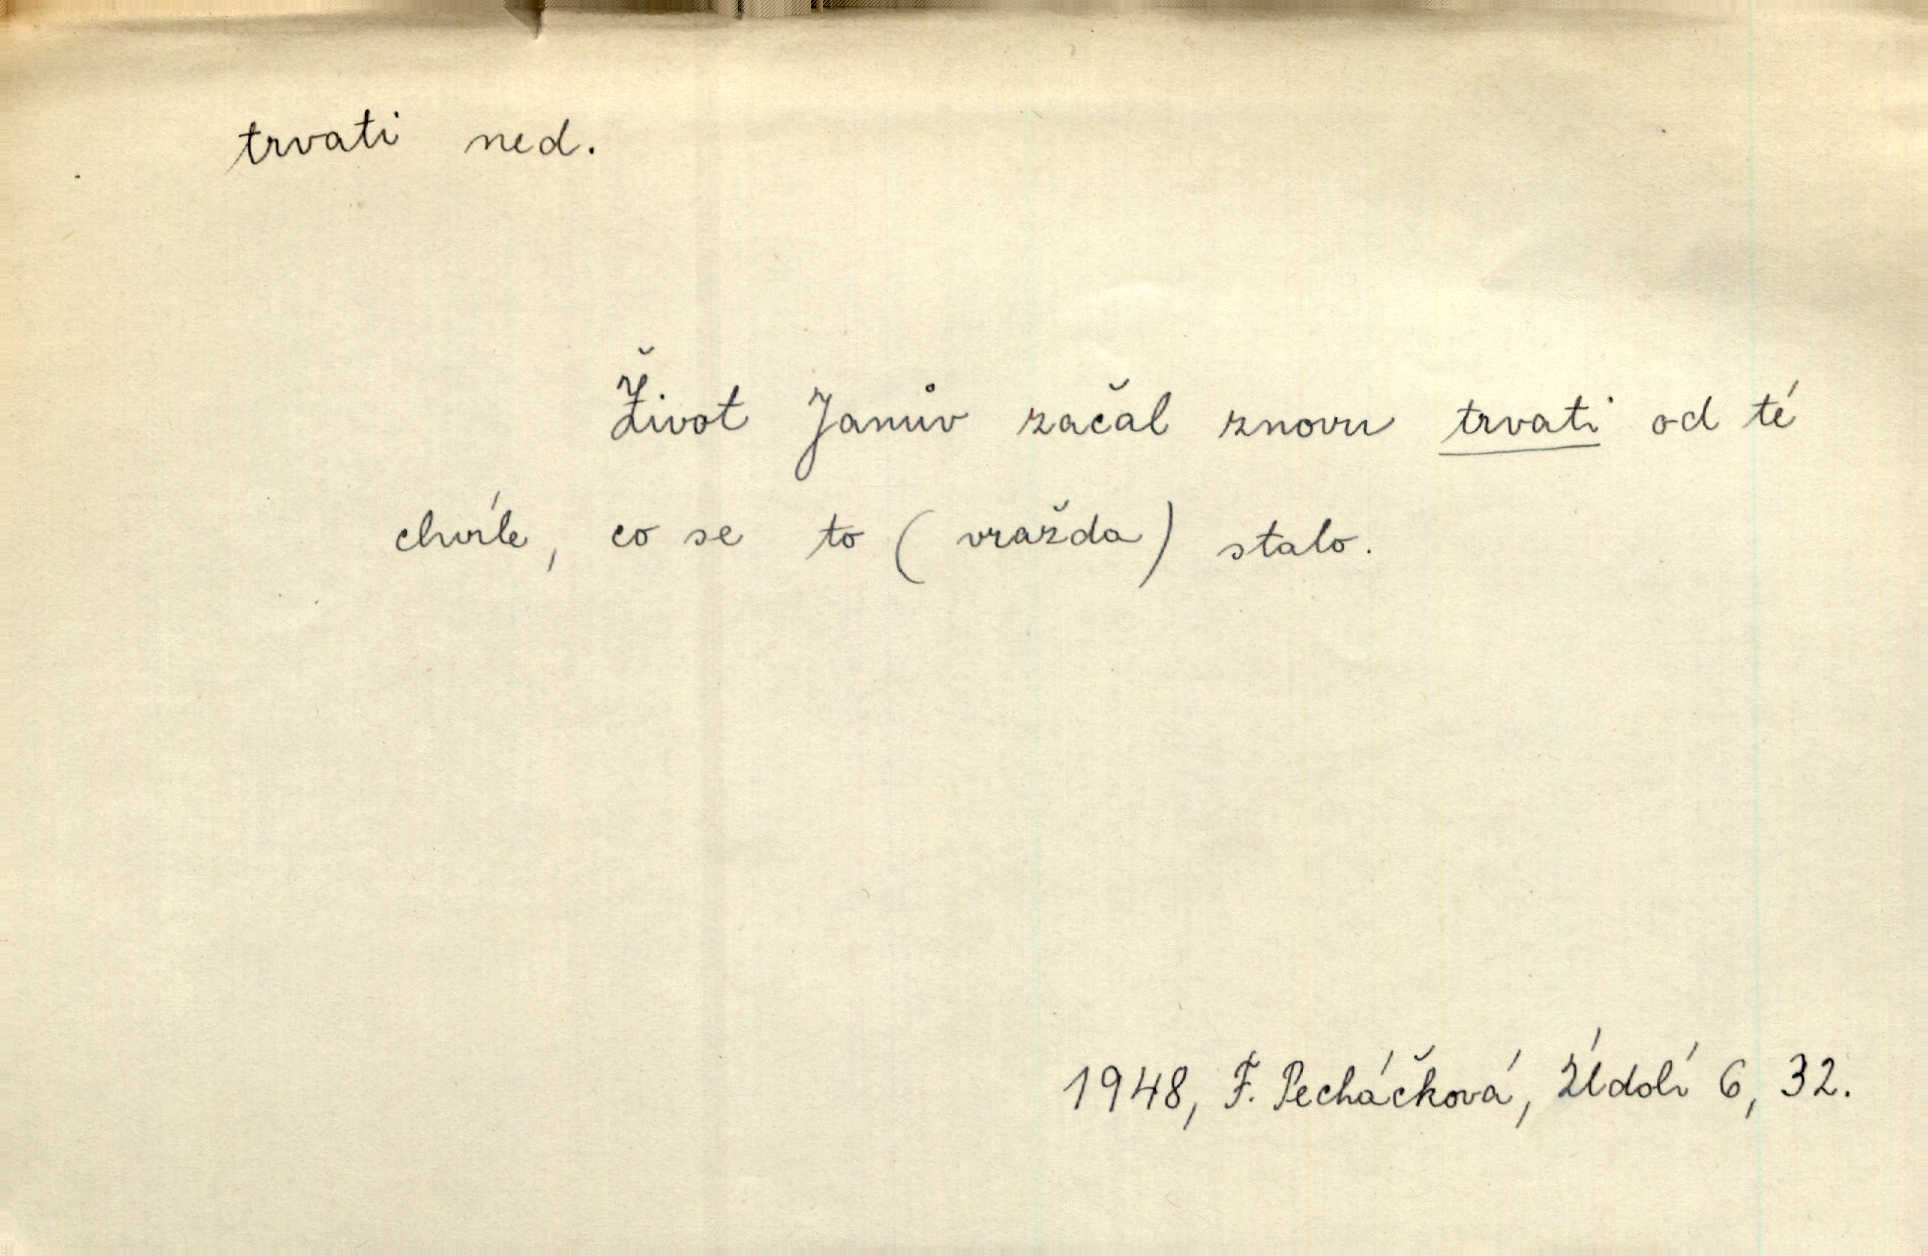 trvati ned.
Život Janův začal znovu trvati od té
chvíle, co se to (vražda) stalo.
1948, F. Pecháčková, Údolí 6, 32.